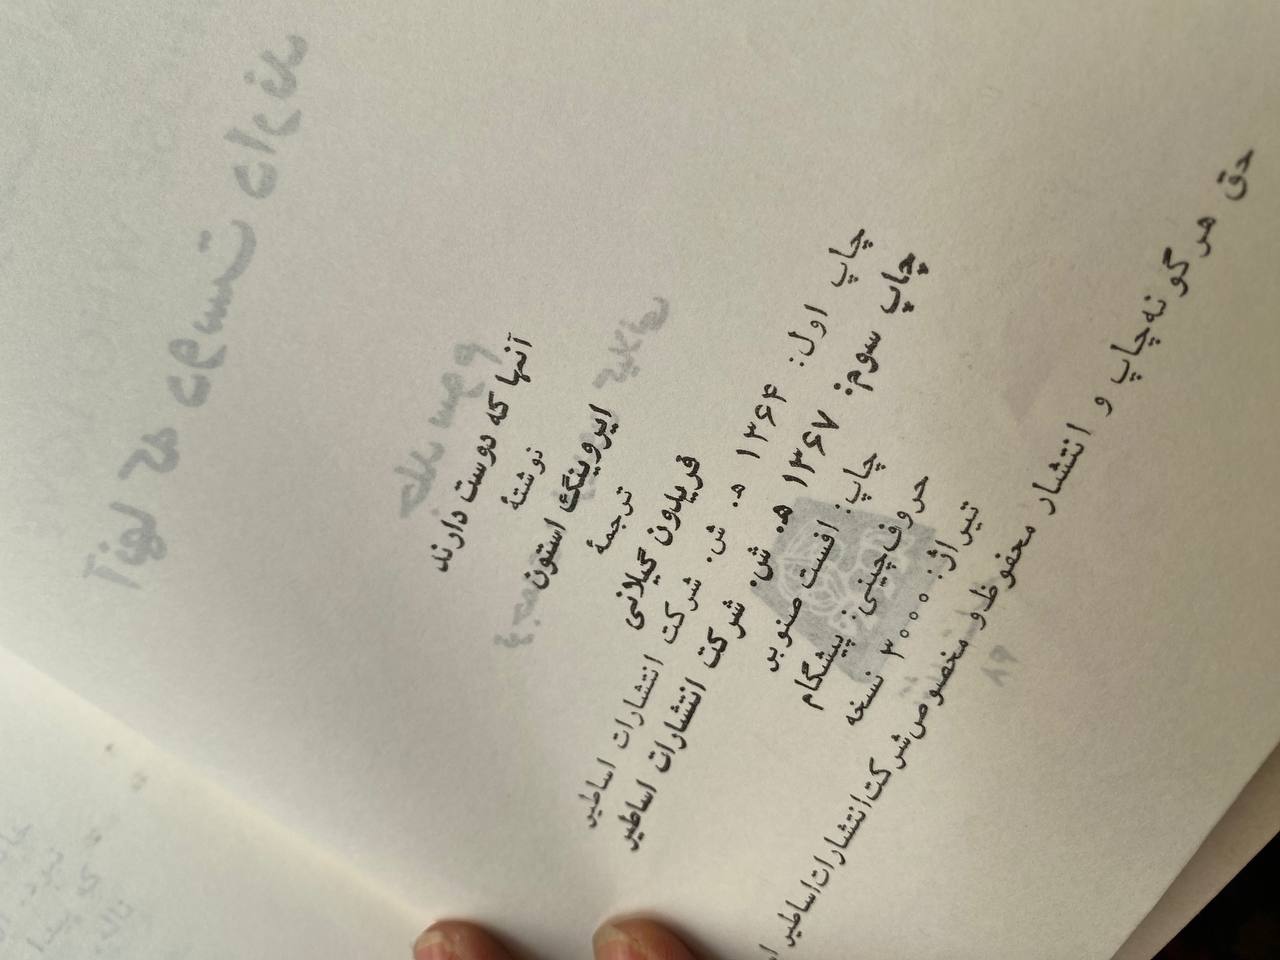 آنها که دوست دارند
نوشتهٔ
ایروینگ استون
ترجمهٔ
فریدون گیلانی
چاپ اول: ۱۳۶۴ ه. ش. شرکت انتشارات اساطیر
چاپ سوم: ۱۳۶۷ ه. ش. شرکت انتشارات اساطیر
چاپ: افست صنوبر
حروفچینی: پیشگام
تیراژ: ۳۰۰۰ نسخه
حق هرگونه چاپ و انتشار محفوظ و مخصوص شرکت انتشارات اساطیر